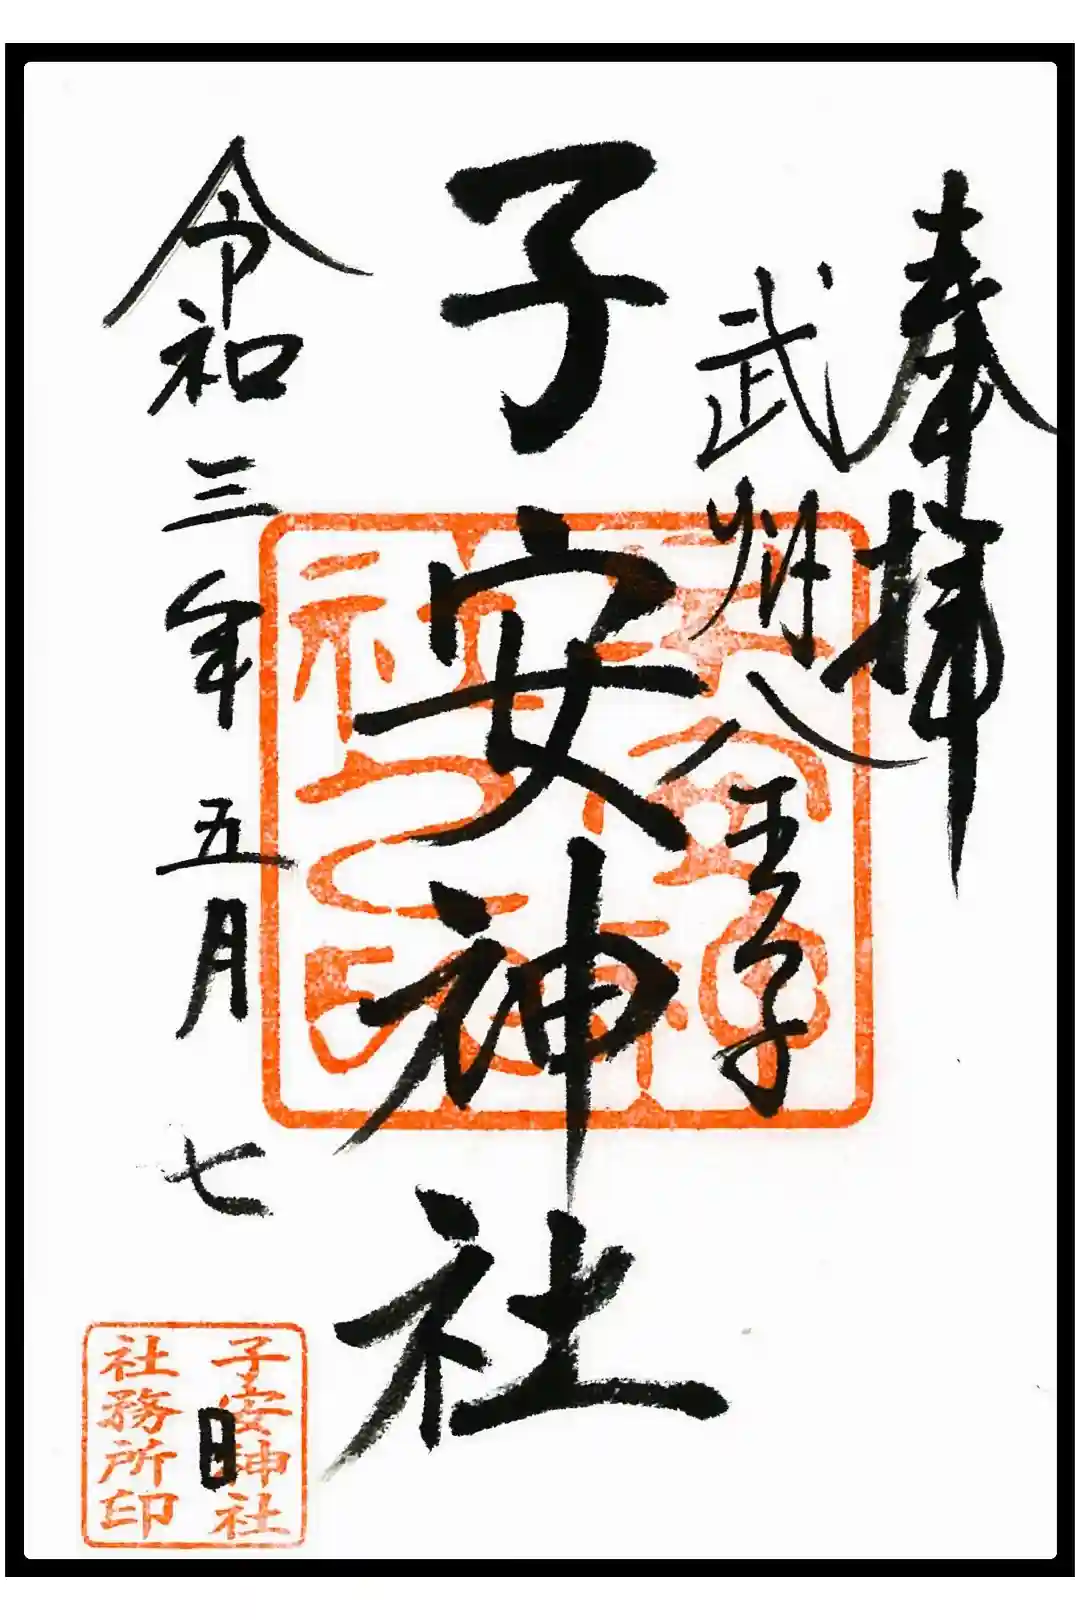 奉拝
武州八王子
子安神社
令和三年五月七日
子安神社
社務所印